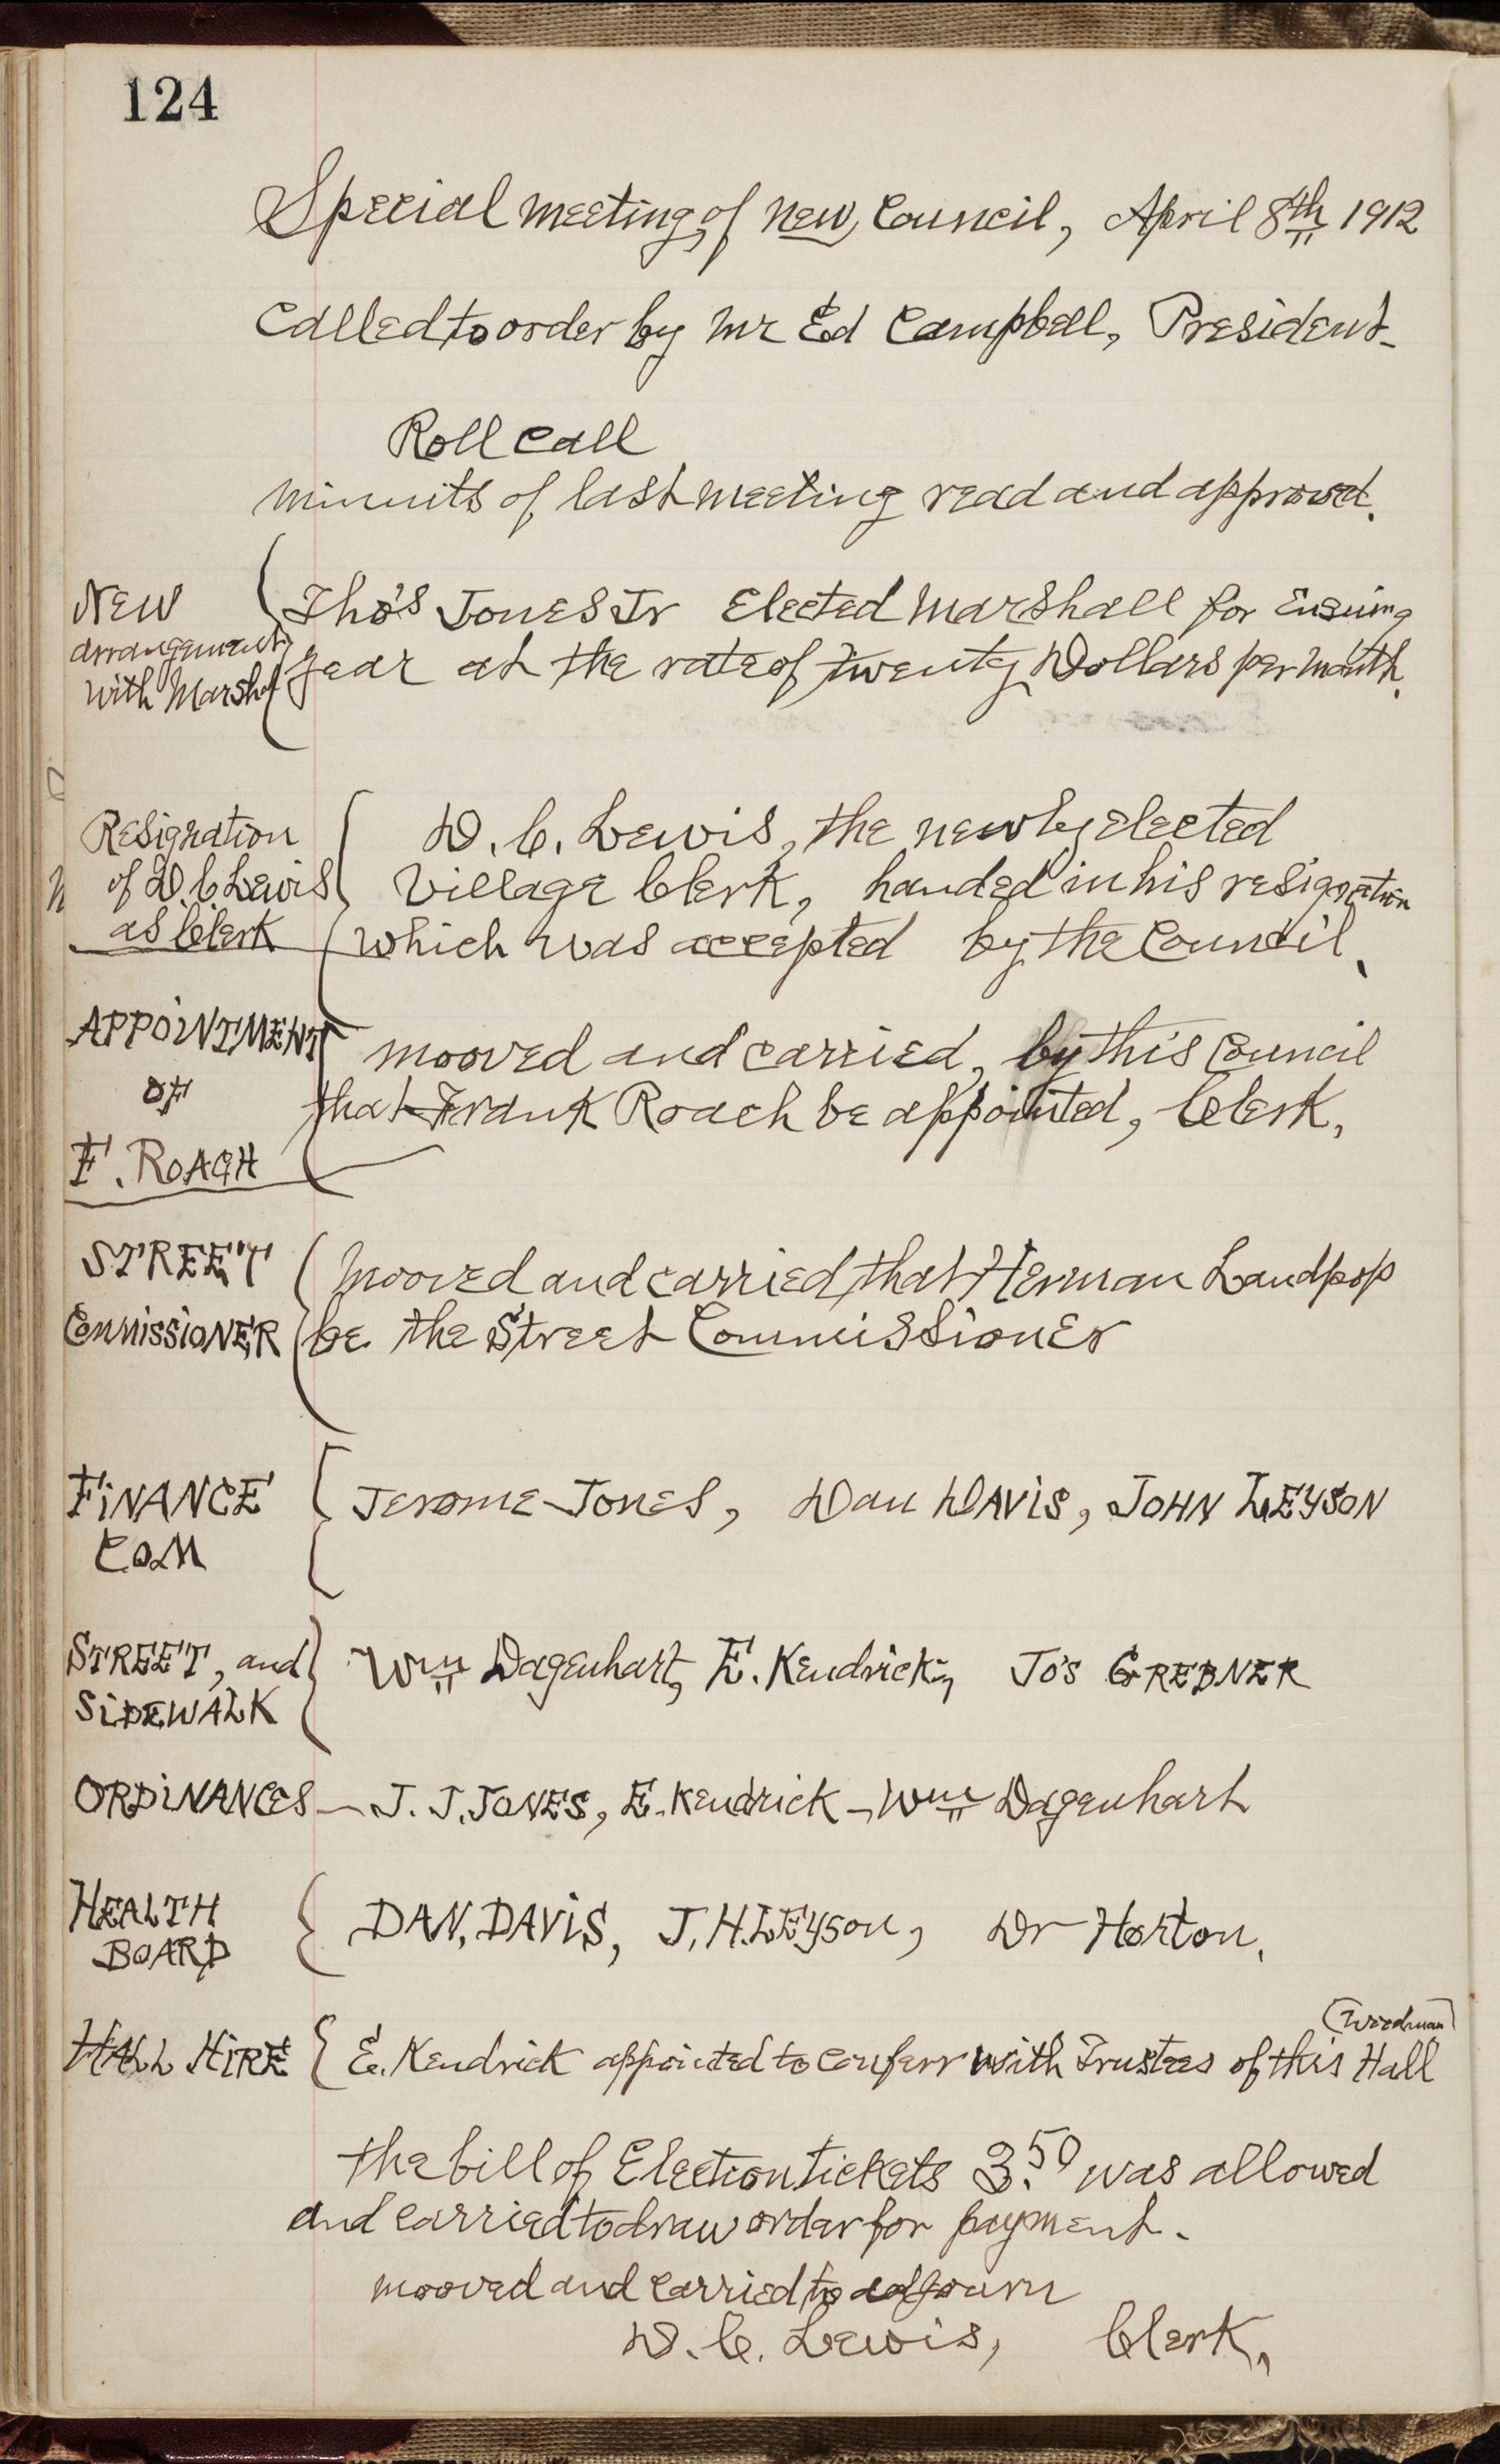 124
Special meeting, of New, Council, April 8th 1912
Called to order by Mr Ed Campbell, President-
Roll Call
minuits of last meeting read and approved.
New
arrangement
with Marshal
Tho's Jones Jr Elected Marshall for Ensuing
year at the rate of twenty Dollars per month.
Resignation
of D. C. Lewis
as Clerk
D. C. Lewis, the newly elected
Village Clerk, handed in his resignation
which was accepted by the Council.
APPOINTMENT
OF
F. ROACH
mooved and carried, by this Council
that Frank Roach be appointed, Clerk,
STREET
COMMISSIONER
mooved and carried, that Herman Landpop
be the Street Commissioner
FINANCE
COM
Jerome Jones, Dan DAVIS, JOHN LEYSON
STREET, and
SIDEWALK
Wm Dagenhart, E. Kendrick, Jo's GREBNER
ORDINANCES - J. J. JONES, E. Kendrick - Wm Dagenhart
HEALTH
BOARD
DAN. DAVIS, J. H. LEYSON, Dr Horton.
HALL HIRE
(Woodman)
E. Kendrick appointed to conferr with Trustees of this Hall
the bill of Election tickets 3.50 was allowed
and carried to draw order for payment.
mooved and carried to adjourn
D. C. Lewis, Clerk,